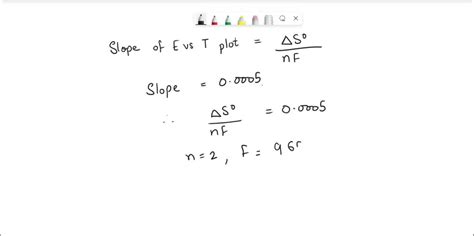 Slope of E vs T plot = ΔS⁰/nF
Slope = 0.0005
∴ ΔS⁰/nF = 0.0005
n=2, F = 96